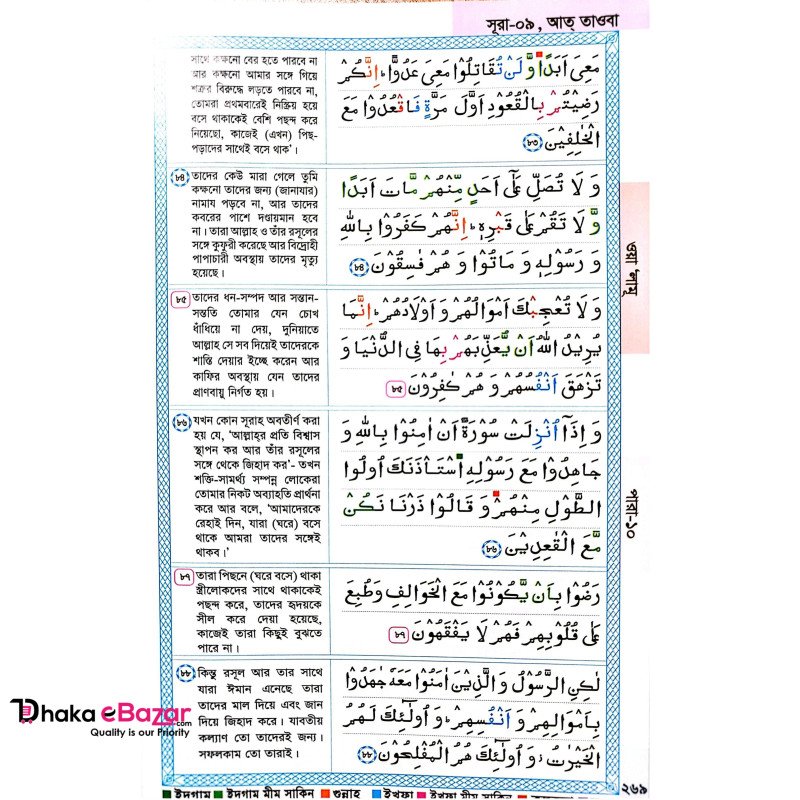 সূরা-০৯, আত্ তাওবা
সাথে কক্ষনো বের হতে পারবে না
আর কক্ষনো আমার সঙ্গে গিয়ে
শত্রুর বিরুদ্ধে লড়তে পারবে না,
তোমরা প্রথমবারেই নিষ্ক্রিয় হয়ে
বসে থাকাকেই বেশি পছন্দ করে
নিয়েছো, কাজেই (এখন) পিছ-
পড়াদের সাথেই বসে থাক’।
مَعِیَ اَبَدًا وَّ لَنْ تُقَاتِلُوْا مَعِیَ عَدُوًّا ؕ اِنَّکُمْ
رَضِیْتُمْ بِالْقُعُوْدِ اَوَّلَ مَرَّۃٍ فَاقْعُدُوْا مَعَ
الْخٰلِفِیْنَ ৮৩
৮৪ তাদের কেউ মারা গেলে তুমি
কক্ষনো তাদের জন্য (জানাযার)
নামায পড়বে না, আর তাদের
কবরের পাশে দণ্ডায়মান হবে
না। তারা আল্লাহ ও তাঁর রসূলের
সঙ্গে কুফুরী করেছে আর বিদ্রোহী
পাপাচারী অবস্থায় তাদের মৃত্যু
হয়েছে।
وَ لَا تُصَلِّ عَلٰۤی اَحَدٍ مِّنْهُمْ مَّاتَ اَبَدًا
وَّ لَا تَقُمْ عَلٰی قَبْرِہٖ ؕ اِنَّهُمْ کَفَرُوْا بِاللّٰهِ
وَ رَسُوْلِہٖ وَ مَاتُوْا وَ هُمْ فٰسِقُوْنَ ৮৪
৮৫ তাদের ধন-সম্পদ আর সন্তান-
সন্ততি তোমার যেন চোখ
ধাঁধিয়ে না দেয়, দুনিয়াতে
আল্লাহ সে সব দিয়েই তাদেরকে
শাস্তি দেয়ার ইচ্ছে করেন আর
কাফির অবস্থায় যেন তাদের
প্রাণবায়ু নির্গত হয়।
وَ لَا تُعْجِبْكَ اَمْوَالُهُمْ وَ اَوْلَادُهُمْ ؕ اِنَّمَا
یُرِیْدُ اللّٰهُ اَنْ یُّعَذِّبَهُمْ بِهَا فِی الدُّنْیَا وَ
تَزْهَقَ اَنْفُسُهُمْ وَ هُمْ کٰفِرُوْنَ ৮৫
৮৬ যখন কোন সূরাহ অবতীর্ণ করা
হয় যে, ‘আল্লাহ্‌র প্রতি বিশ্বাস
স্থাপন কর আর তাঁর রসূলের
সঙ্গে থেকে জিহাদ কর’- তখন
শক্তি-সামর্থ্য সম্পন্ন লোকেরা
তোমার নিকট অব্যাহতি প্রার্থনা
করে আর বলে, ‘আমাদেরকে
রেহাই দিন, যারা (ঘরে) বসে
থাকে আমরা তাদের সঙ্গেই
থাকব।’
وَ اِذَاۤ اُنْزِلَتْ سُوْرَۃٌ اَنْ اٰمِنُوْا بِاللّٰهِ وَ
جَاهِدُوْا مَعَ رَسُوْلِهِ اسْتَاْذَنَكَ اُولُوا
الطَّوْلِ مِنْهُمْ وَ قَالُوْا ذَرْنَا نَکُنْ
مَّعَ الْقٰعِدِیْنَ ৮৬
৮৭ তারা পিছনে (ঘরে বসে) থাকা
স্ত্রীলোকদের সাথে থাকাকেই
পছন্দ করে, তাদের হৃদয়কে
সীল করে দেয়া হয়েছে,
কাজেই তারা কিছুই বুঝতে
পারে না।
رَضُوْا بِاَنْ یَّکُوْنُوْا مَعَ الْخَوَالِفِ وَطُبِعَ
عَلٰی قُلُوْبِهِمْ فَهُمْ لَا یَفْقَهُوْنَ ৮৭
৮৮ কিন্তু রসূল আর তার সাথে
যারা ঈমান এনেছে তারা
তাদের মাল দিয়ে এবং জান
দিয়ে জিহাদ করে। যাবতীয়
কল্যাণ তো তাদেরই জন্য।
সফলকাম তো তারাই।
لٰکِنِ الرَّسُوْلُ وَ الَّذِیْنَ اٰمَنُوْا مَعَهٗ جٰهَدُوْا
بِاَمْوَالِهِمْ وَ اَنْفُسِهِمْ ؕ وَ اُولٰٓئِكَ لَهُمُ
الْخَیْرٰتُ ؗ وَ اُولٰٓئِكَ هُمُ الْمُفْلِحُوْنَ ৮৮
ওয়া'লামূ
পারা-১০
Dhaka eBazar.com
Quality is our Priority
২৬৯
ইদগাম ইদগাম মীম সাকিন গুন্নাহ ইখফা ইখফা মীম সাকিন